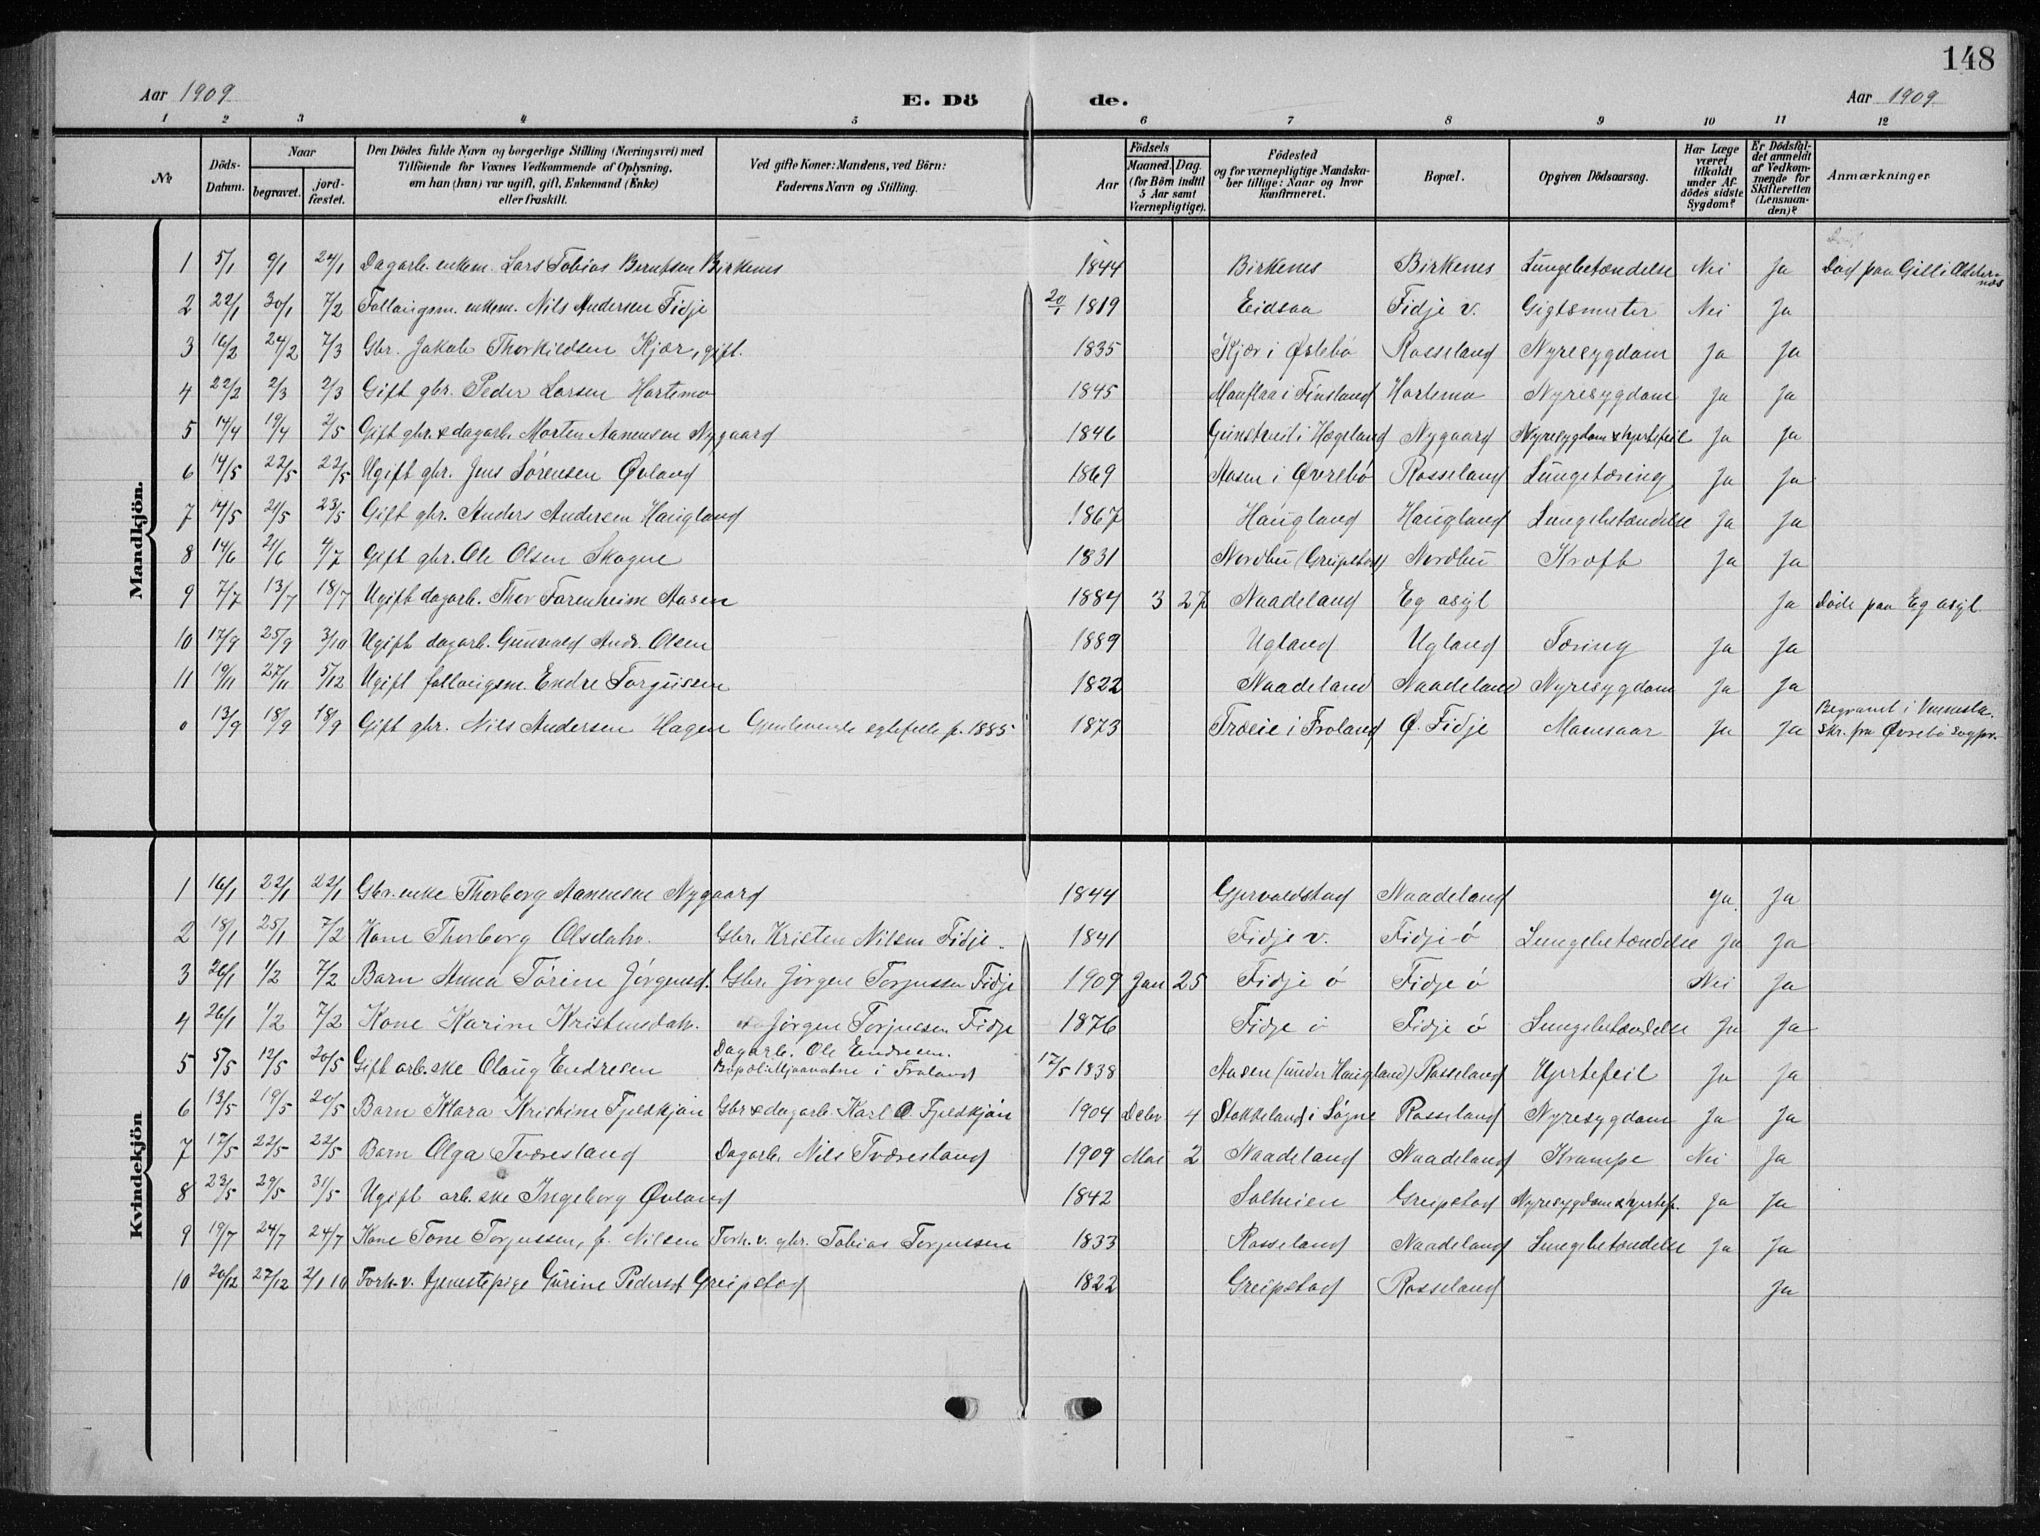 148
Aar 1909 E. Dö de. Aar 1909
1 2 3 4 5 6 7 8 9 10 11 12
No
Döds-Datum.
Naar
begravet.
jord-fæstet.
Den Dödes fulde Navn og borgerlige Stilling (Næringsvei) med Tilföiende for Voxnes Vedkommende af Oplysning, om han (hun) var ugift, gift, Enkemand (Enke) eller fraskilt.
Ved gifte Koner: Mandens, ved Börn: Faderens Navn og Stilling.
Födsels
Aar
Maaned. Dag.
(for Börn indtil 5 Aar samt Værnepligtige).
Födested og for værnepligtige Mandskaber tillige: Naar og hvor konfirmeret.
Bopæl.
Opgiven Dödsaarsag.
Har Læge været tilkaldt under Afdödes sidste Sygdom?
Er Dödsfaldet anmeldt af Vedkommende for Skifteretten (Lensmanden)?
Anmærkninger
Mandkjön.
1 5/1 9/1 24/1 Dagarb. enkem. Lars Tobias Berntsen Birkenes 1844 Birkenes Birkenes Lungebetændelse Nei Ja Død paa Gill i Oddernes
2 22/1 30/1 7/2 Follaugsm. enkem. Nils Andersen Fidje 20/1 1819 Eidsaa Fidje v. Gigtsmerter Nei Ja
3 16/2 24/2 7/3 Gbr. Jakob Thorkildsen Kjær, gift. 1835 Kjær i Øslebø Rosseland Nyresygdom Ja Ja
4 22/2 2/3 2/3 Gift gbr. Peder Larsen Hortemo 1845 Mouflaa i Finsland Hortemo Nyresygdom Ja Ja
5 14/4 19/4 2/5 Gift gbr. & dagarb. Morten Aanensen Nygaard 1846 i Hægeland Nygaard Nyresygdom & hjertefeil Ja Ja
6 14/5 22/5 22/5 Ugift gbr. Jens Sørensen Øvland 1869 Aasen i Øvrebø Rosseland Lungetæring Ja Ja
7 14/5 21/5 23/5 Gift gbr. Anders Andersen Haugland 1867 Haugland Haugland Lungebetændelse Ja Ja
8 14/6 21/6 4/7 Gift gbr. Ole Olsen Skogen 1831 Nordbu (Greipstad) Nordbu Kræft Ja Ja
9 7/7 13/7 18/7 Ugift dagarb. Thor Farenheim Aasen 1884 3 27 Naadeland Eg asyl Ja Døde paa Eg asyl
10 17/9 25/9 3/10 Ugift dagarb. Gunvald Andr. Olsen 1889 Ugland Ugland Tæring Ja Ja
11 19/11 27/11 5/12 Ugift follaugsm. Endre Torgussen 1822 Naadeland Naadeland Nyresygdom Ja Ja
0 13/9 18/9 18/9 Gift gbr. Nils Andersen Hagen Gjenlevende egtefelle f. 1885 1873 Træeie i Froland Ø. Fidje Mavesaar Ja Ja Begravet i Vennesla. Skr. fra Øvrebø sogpr.
Kvindekjön
1 16/1 22/1 22/1 Gbr. enke Thorborg Aanensen Nygaard 1844 Gjervoldstad Naadeland Ja. Ja
2 18/1 25/1 7/2 Kone Thorborg Olsdatr. Gbr. Kristen Nilsen Fidje. 1841 Fidje v. Fidje ø Lungebetændelse Ja Ja
3 26/1 1/2 7/2 Barn Anna Tørine Jørgensd. Gbr. Jørgen Torjussen Fidje 1909 Jan 25 Fidje ø Fidje ø Nei Ja
4 26/1 1/2 7/2 Kone Karine Kristensdatr. do Jørgen Torjussen Fidje 1876 Fidje ø Fidje ø Lungebetændelse Ja Ja
5 5/5 12/5 20/5 Gift arb.ske Olaug Endresen Dagarb. Ole Endresen. Bopæl: Mjaavatne i Froland 17/5 1838 Aasen (under Haugland) Rosseland Hjertefeil Ja Ja
6 13/5 19/5 20/5 Barn Klara Kristine Fjeldkjøn Gbr & dagarb. Karl O. Fjeldkjøn 1904 Debr 4 Stokkeland i Søgne Rosseland Nyresygdom Ja Ja
7 17/5 22/5 22/5 Barn Olga Tveresland Dagarb. Nils Tværesland 1909 Mai 2 Naadeland Naadeland Krampe Nei Ja
8 23/5 29/5 31/5 Ugift arb.ske Ingeborg Øvland 1842 Solheien Greipstad Nyresygdom & hjertef. Ja Ja
9 19/7 24/7 24/7 Kone Tone Torjussen, f. Nilsen Forh. v. gbr. Tobias Torjussen 1833 Rosseland Naadeland Lungebetændelse Ja Ja
10 20/12 27/12 2/1 10 Forh. v. tjenestepige Gurine Pedersd Greipstad 1822 Greipstad Rosseland Ja